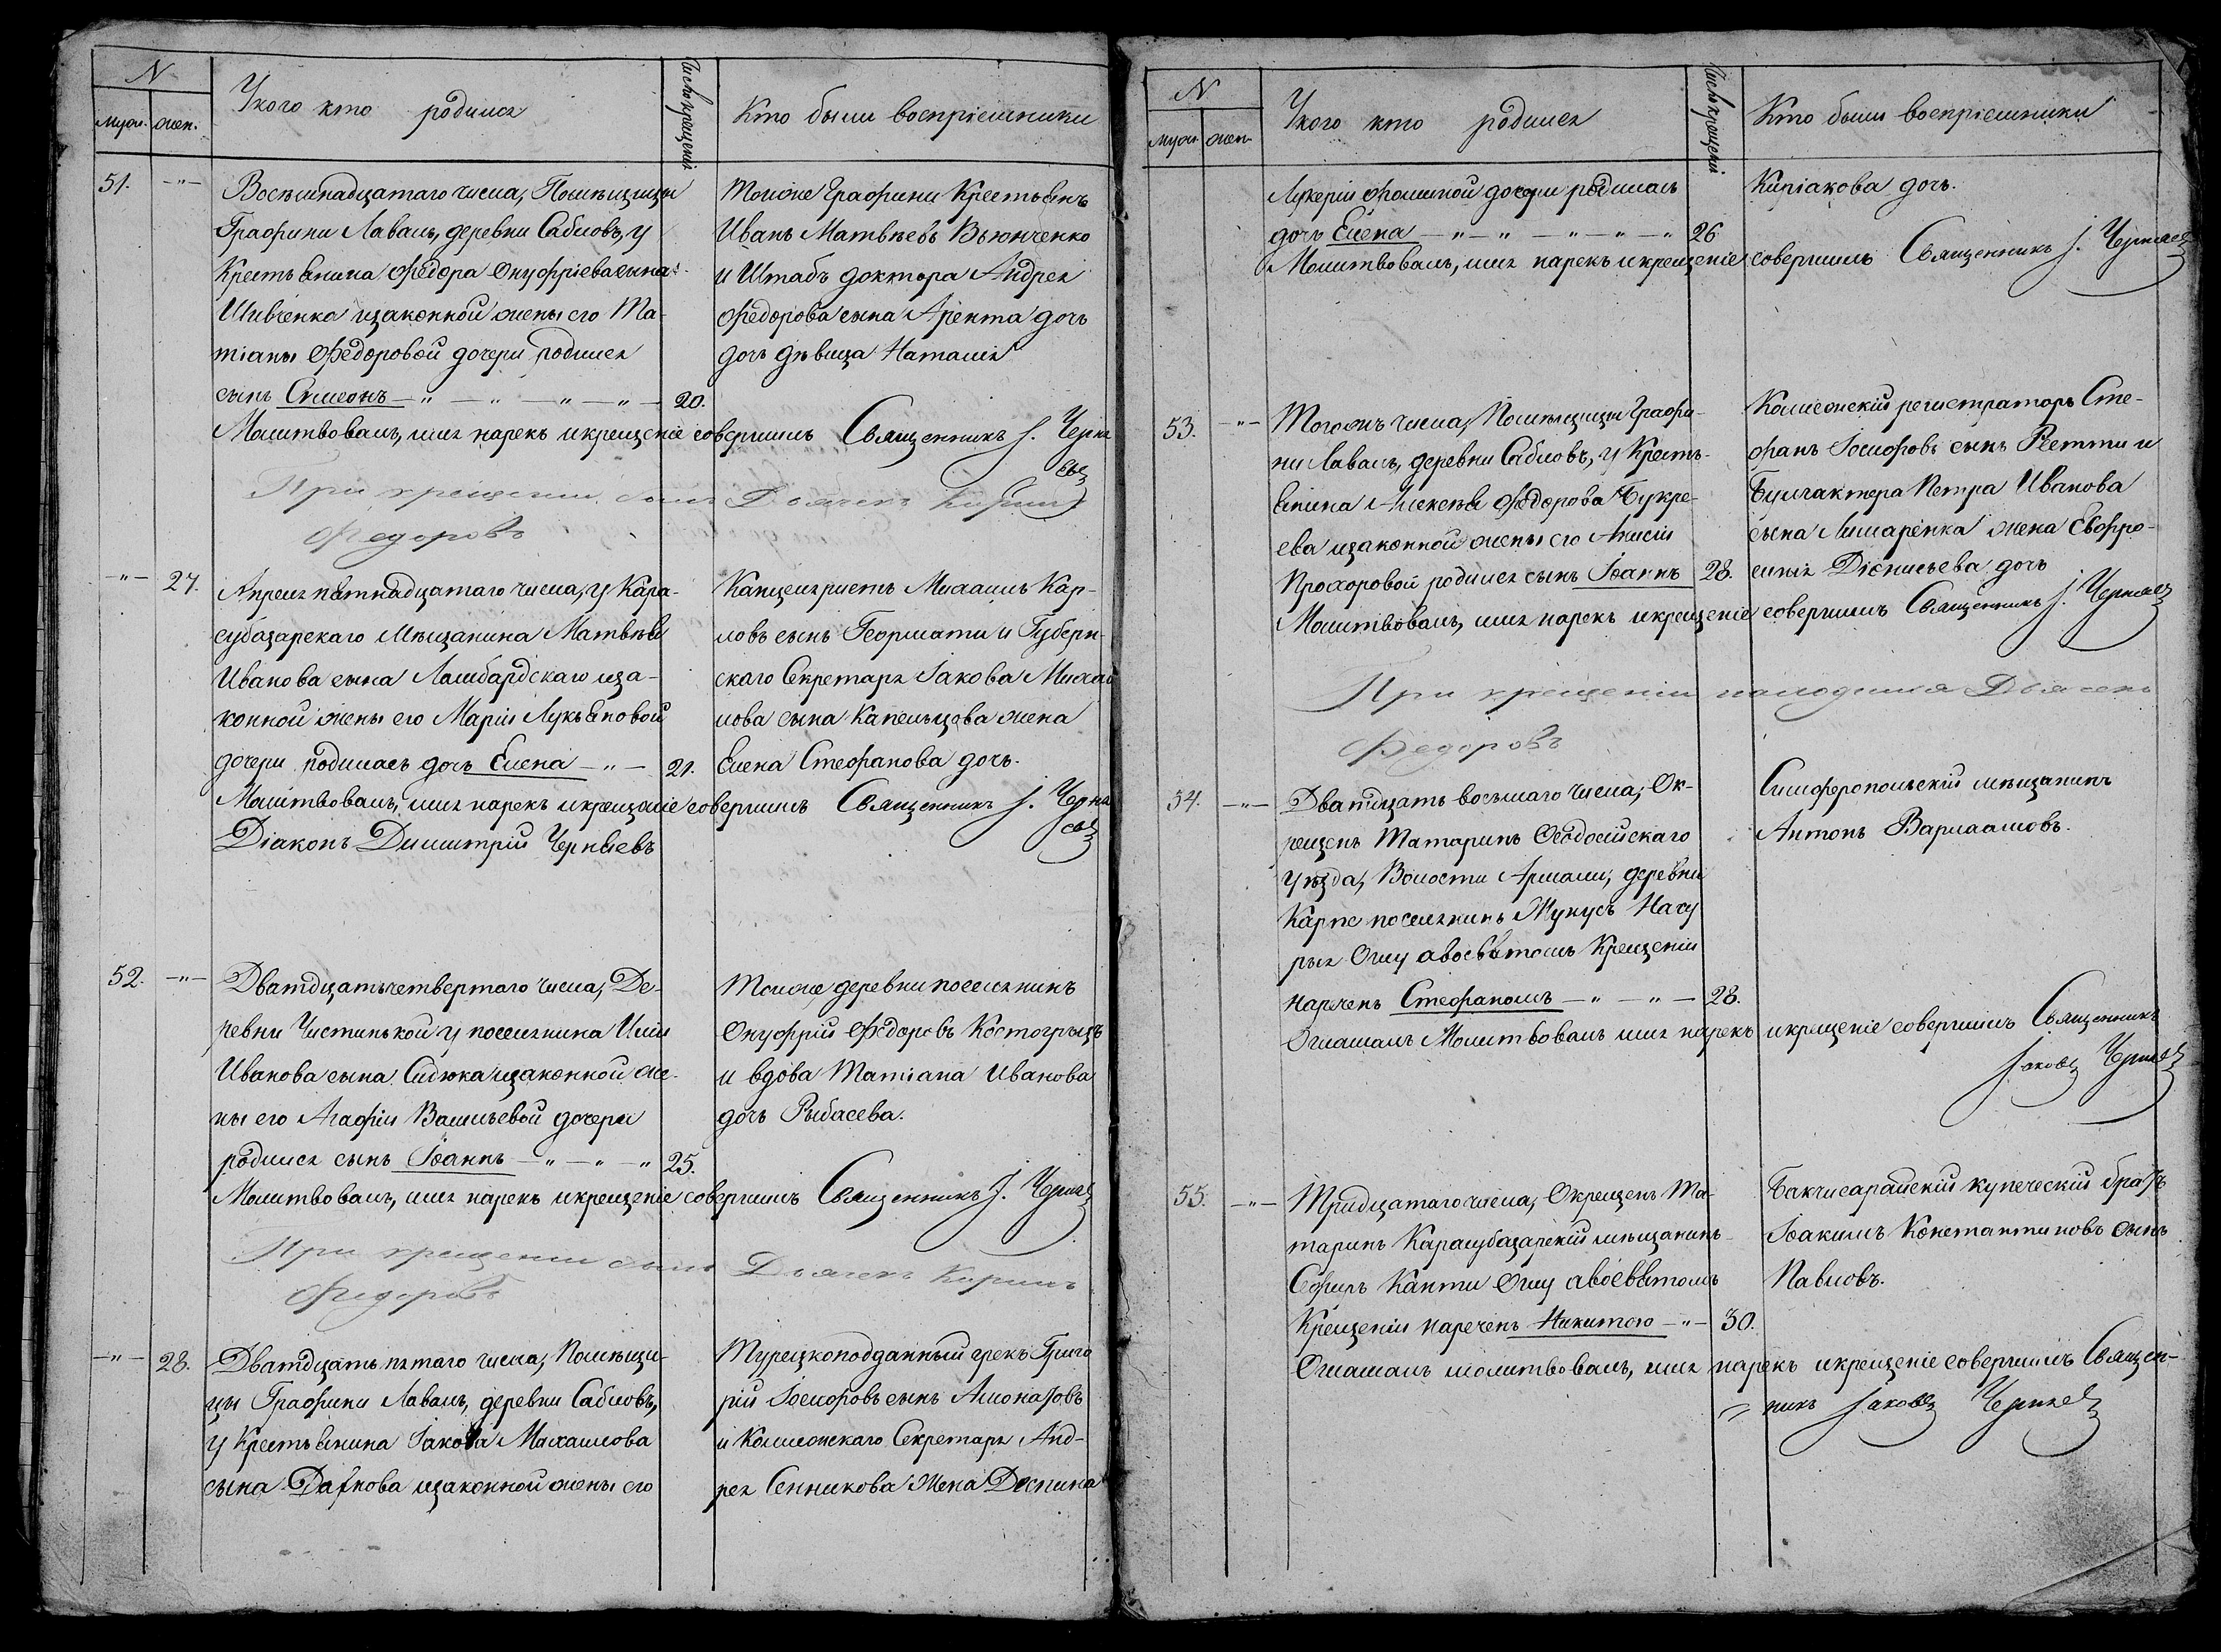 N
муж. жен.
У кого кто родился
Число крещенія
Кто были воспріемники
51. -"-
Восьмнадцатаго числа, Помѣщицы
Графини Лаваль, деревни Сабловъ, у
Крестьянина Федора Онуфріева сына
Шивченка изаконной жены его Та-
тіаны Федоровой дочери родился
сынъ Симеонъ -"- -"- -"- 20.
Тойже Графини Крестьянъ
Иванъ Матвѣевъ Вьюнченко
и Штабъ доктора Андрея
Федорова сына Арента дочь
дочь дѣвица Наталія
Молитвовалъ, имя нарекъ икрещеніе совершилъ Священникъ І. Черня
евъ
При крещеніи былъ Дьячекъ Кирилъ
Федоровъ
-"- 27.
Апреля пятнадцатаго числа, у Кара-
субазарскаго Мѣщанина Матвѣя
Иванова сына Ламбардскаго иза-
конной жены его Маріи Лукьяновой
дочери родилась дочь Елена -"- 21.
Канцеляристъ Михаилъ Кар-
ловъ сынъ Георгіати и Губерн-
скаго Секретаря Іакова Михаи
лова сына Капельцова жена
Елена Стефанова дочь.
Молитвовалъ, имя нарекъ икрещаніе совершилъ Священникъ І. Черня
евъ
Діаконъ Димитрій Чернѣевъ
52. -"-
Дватдцатьчетвертаго числа, Де-
ревни Чистинькой у поселянина Иліи
Иванова сына Сидюка изаконной же-
ны его Агафіи Васильевой дочери
родился сынъ Іоаннъ -"- -"- " 25.
Тойже деревни поселянинъ
Онуфрій Федоровъ Костогрызъ
и вдова Татіана Иванова
дочь Рыбасева.
Молитвовалъ, имя нарекъ икрещеніе совершилъ Священникъ І. Черняевъ
При крещеніи былъ Дьячекъ Кирилъ
Федоровъ
-"- 28.
Дватдцать пятаго числа, Помѣщи-
цы Графини Лаваль, деревни Сабловъ,
у Крестьянина Іакова Михаилова
сына Дахнова изаконной жены его
Турецкоподданный грекъ Григо
рій Іосифовъ сынъ
и Коллежскаго Секретаря Анд-
рея Сенникова жена Деспина
N
муж. жен.
У кого кто родился
Число крещеній
Кто были воспріемники
Лукеріи Фоминой дочери родилась
дочь Елена -"-"- -"-"-" 26
Киріакова дочь.
Молитвовалъ, имя нарекъ икрещеніе совершилъ Священникъ І. Черняевъ
53. -"-
Тогожъ числа, Помѣщицы Графи-
ни Лаваль, деревни Сабловъ, у Кресть-
янина Алексѣя Федорова Букре-
ева изаконной жены его Анисіи
Прохоровой родился сынъ Іоаннъ 28.
Коллежскій регистраторъ Сте-
фанъ Іосифовъ сынъ Ретти и
Бухгактера Петра Иванова
сына Лимаренка жена Евфро-
синія Діонисьева дочь
Молитвовалъ, имя нарекъ икрещеніе совершилъ Священникъ І. Черняевъ
При крещеніи находился Дьячекъ
Федоровъ
54. -"-
Дватдцать восьмаго числа, Ок-
рещенъ Татаринъ Феодосійскаго
уѣзда, Волости Аргаши, деревни
Карпе поселянинъ Мукусъ Нагу
рыя Оглу авосвятомъ Крещеніи
нареченъ Стефаномъ -"- -"- 28.
Симферопольскій мѣщанинъ
Антонъ Варлаамовъ.
Оглашалъ Молитвовалъ имя нарекъ икрещеніе совершилъ Священникъ
Іаковъ Черняевъ
55. -"-
Тридцатаго числа, Окрещенъ Та-
таринъ Карасубазарскій мѣщанинъ
Сеферъ Канти Оглу авосвятомъ
Крещеніи нареченъ Никитою -"- 30.
Бакчисарайскій купеческій братъ
Іоакимъ Константиновъ сынъ
Павловъ.
Оглашалъ молитвовалъ, имя нарекъ икрещеніе совершилъ Священ-
никъ Іаковъ Черняевъ